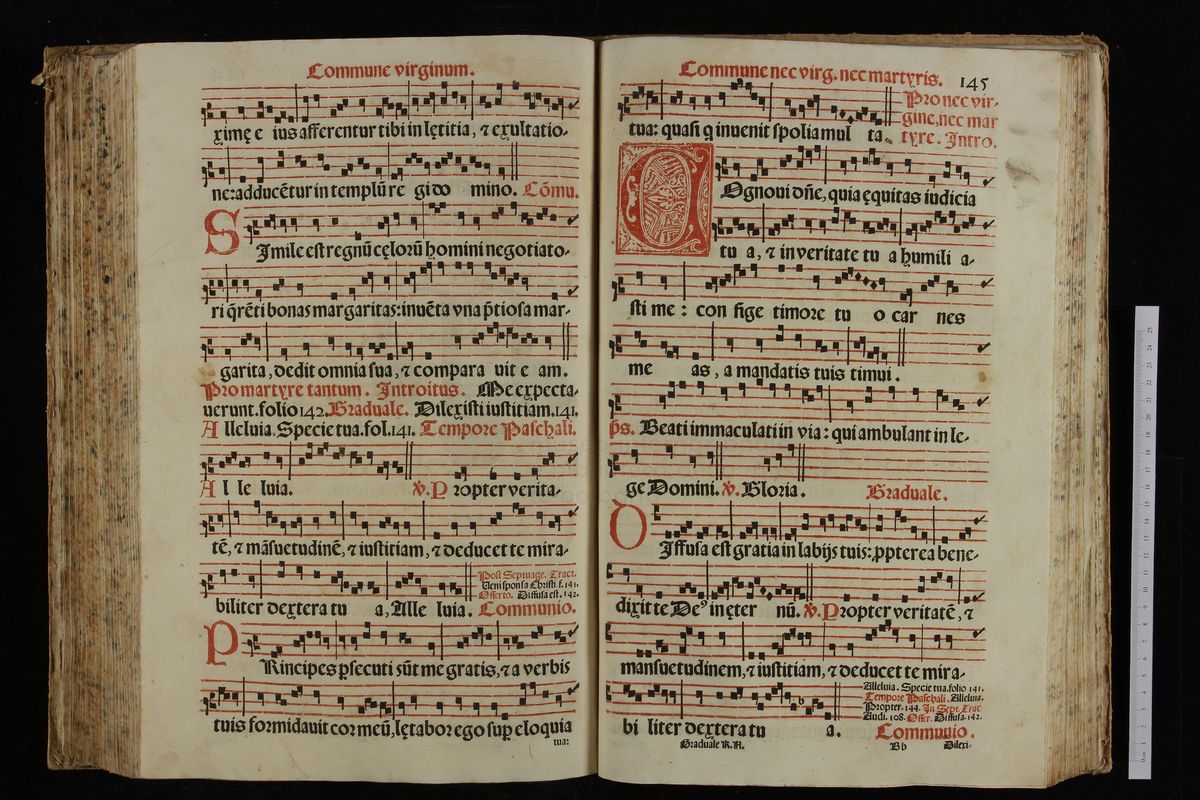 Commune virginum.
ximę e ius afferentur tibi in lętitia, ⁊ exultatio-
ne: adducētur in templū re gi do mino. Cōmu.
SImile est regnū cęlorū homini negotiato-
ri q̄rēti bonas margaritas: inuēta vna p̄tiosa mar-
garita, dedit omnia sua, ⁊ compara uit e am.
Pro martyre tantum. Introitus. Me expecta-
uerunt. folio 142. Graduale. Dilexisti iustitiam. 141.
Alleluia. Specie tua. fol. 141. Tempore Paschali.
Al le luia. ℣. Propter verita-
tē, ⁊ māsuetudinē, ⁊ iustitiam, ⁊ deducet te mira-
Post Septuage. Tract.
Veni sponsa Christi. f. 141.
Offerto. Diffusa est. 142.
biliter dextera tu a, Alle luia. Communio.
PRincipes ꝑsecuti sūt me gratis, ⁊ a verbis
tuis formidauit cor meū, lętabor ego suꝑ eloquia
tua:
Commune nec virg. nec martyris. 145
Pro nec vir-
gine, nec mar
tua: quasi q inuenit spolia mul ta. tyre. Intro.
COgnoui dn̄e, quia ęquitas iudicia
tu a, ⁊ in veritate tu a humili a-
sti me: con fige timore tu o car nes
me as, a mandatis tuis timui.
p̄s. Beati immaculati in via: qui ambulant in le-
ge Domini. ℣. Gloria. Graduale.
DIffusa est gratia in labijs tuis: ꝓpterea bene-
dixit te Deꝰ in ęter nū. ℣. Propter veritatē, ⁊
mansuetudinem, ⁊ iustitiam, ⁊ deducet te mira-
Alleluia. Specie tua. folio 141.
Tempore Paschali. Alleluia.
Propter. 144. In Sept. Trac
Audi. 108. Offer. Diffusa. 142.
bi liter dextera tu a. Communio.
Graduale R.N. Bb Dilexi-